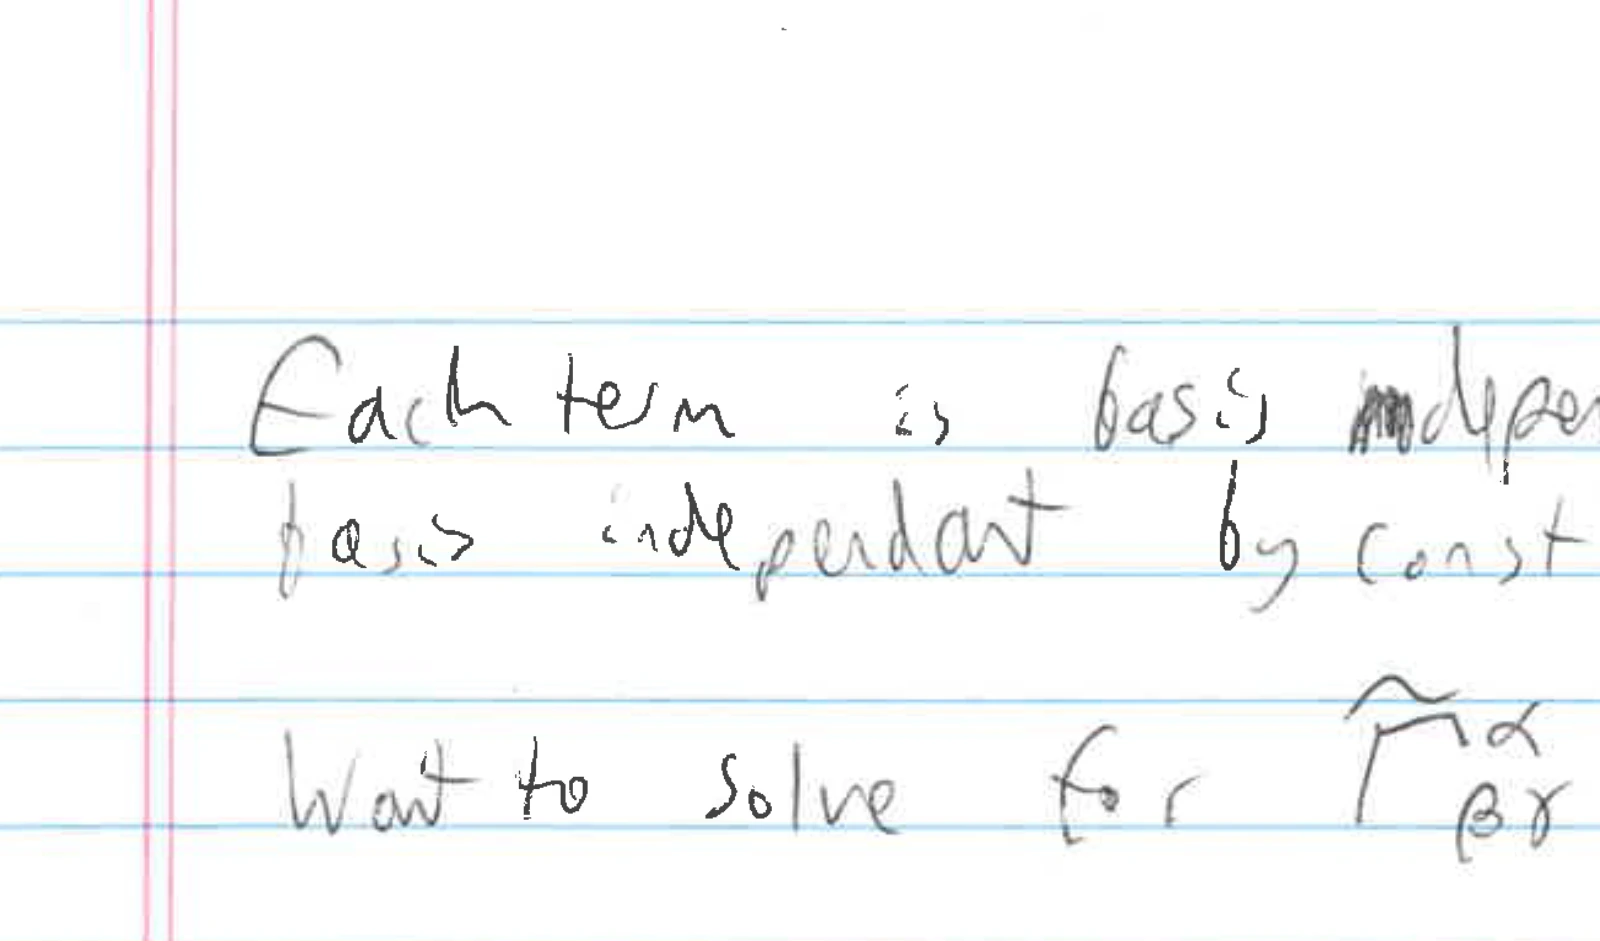 Each term is basis indepen
basis independant by const
Want to solve for $\tilde{\Gamma}^{\alpha}_{\beta\gamma}$